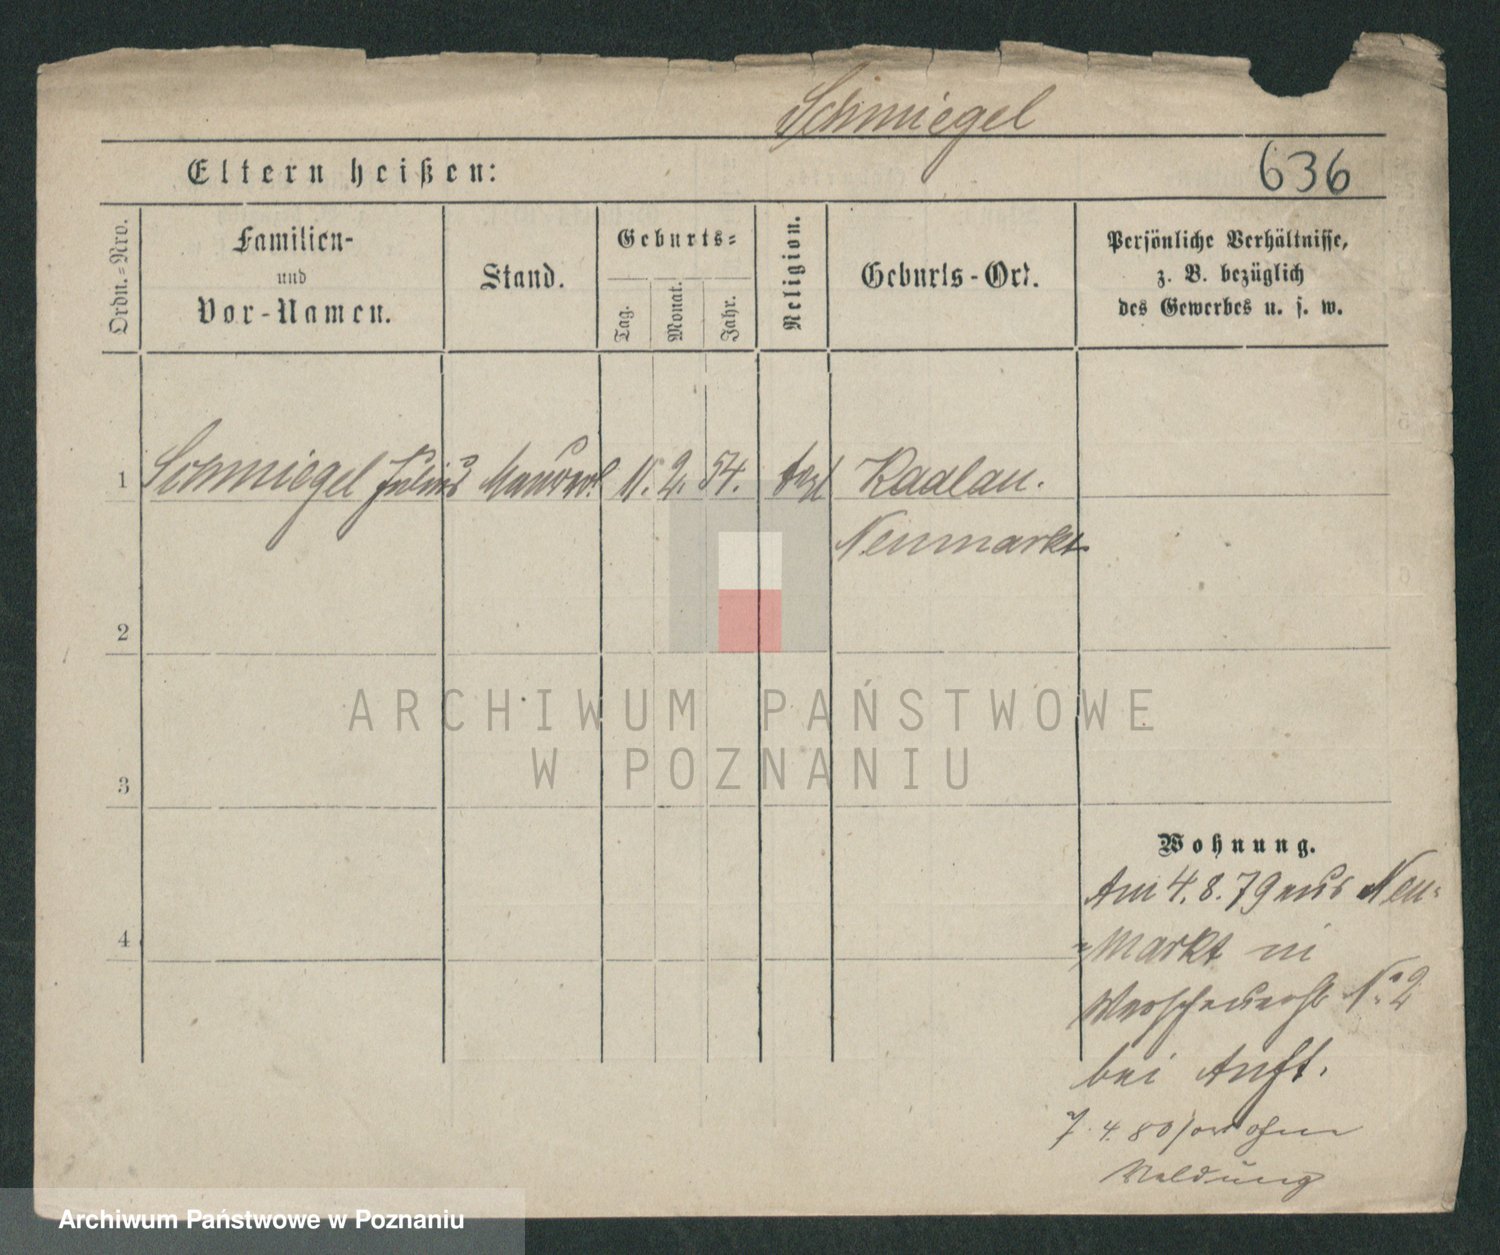 Schmiegel
Eltern heißen:
636
Ordn.-Nro.
Familien-
und
Vor-Namen.
Stand.
Geburts-
Tag.
Monat.
Jahr.
Religion.
Geburts-Ort.
Persönliche Verhältnisse,
z. B. bezüglich
des Gewerbes u. s. w.
1 Schmiegel Julius 2. 54. Kadlau.
Neumarkt
2
3
4
ARCHIWUM PAŃSTWOWE
W POZNANIU
Wohnung.
Am 4. 8. 79 aus Neu-
Markt in
No 2
bei
7. 4. 80 fort ohne
Meldung
Archiwum Państwowe w Poznaniu